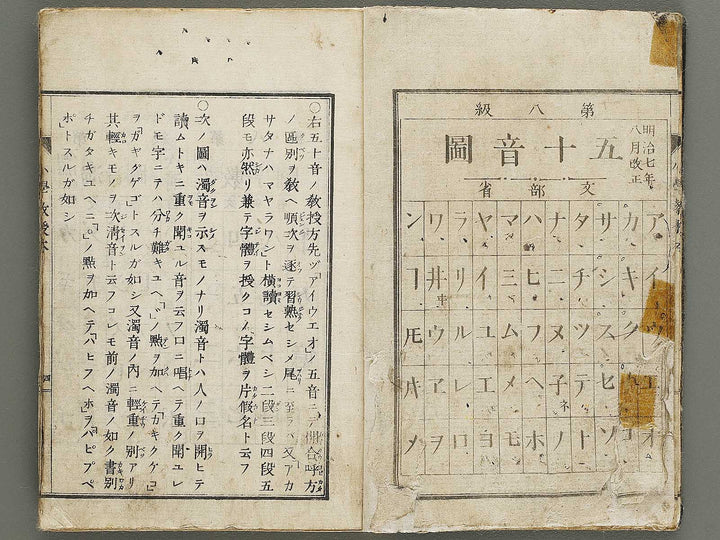 第八級
五十音圖
明治七年
八月改正
文部省
ア イ エ オ
カ キ ク
サ シ ス セ ソ
タ チ ツ テ ト
ナ ニ ヌ 子 ノ
ネ
ハ ヒ フ ヘ ホ
マ ミ ム メ モ
ヤ イ ユ エ ヨ
ラ リ ル レ ロ
ワ 井 ウ ヱ ヲ
ン ヿ 𪜈 メ
〇右五十音ノ教授方先ヅ「アイウエオ」ノ五音ニテ開合呼方
ノ區別ヲ教ヘ順次ヲ逐テ習熟セシメ尾ニ至ラバ又「アカ
サタナハマヤラワン」ト横讀セシムベシ二段三段四段五
段モ亦然リ兼テ字體ヲ授ク「コノ字體ヲ片假名ト云フ
〇次ノ圖ハ濁音ヲ示スモノナリ濁音トハ人ノ口ヲ開ヒテ
讀ムトキニ重ク聞ユル音ヲ云フ口ニ唱ヘテ重ク聞ユレ
ドモ字ニテハ分チ難キユヘ「゛」ノ點ヲ加ヘテ「カキクケコ」
ヲ「ガギグゲゴ」トスルガ如シ又濁音ノ内ニ輕重ノ別アリ
其輕キモノヲ次清音ト云フコレモ前ノ濁音ノ如ク書別
チガタキユヘニ「゜」ノ點ヲ加ヘテ「ハヒフヘホ」ヲ「パピプペ
ポ」トスルガ如シ
小學教授本
四